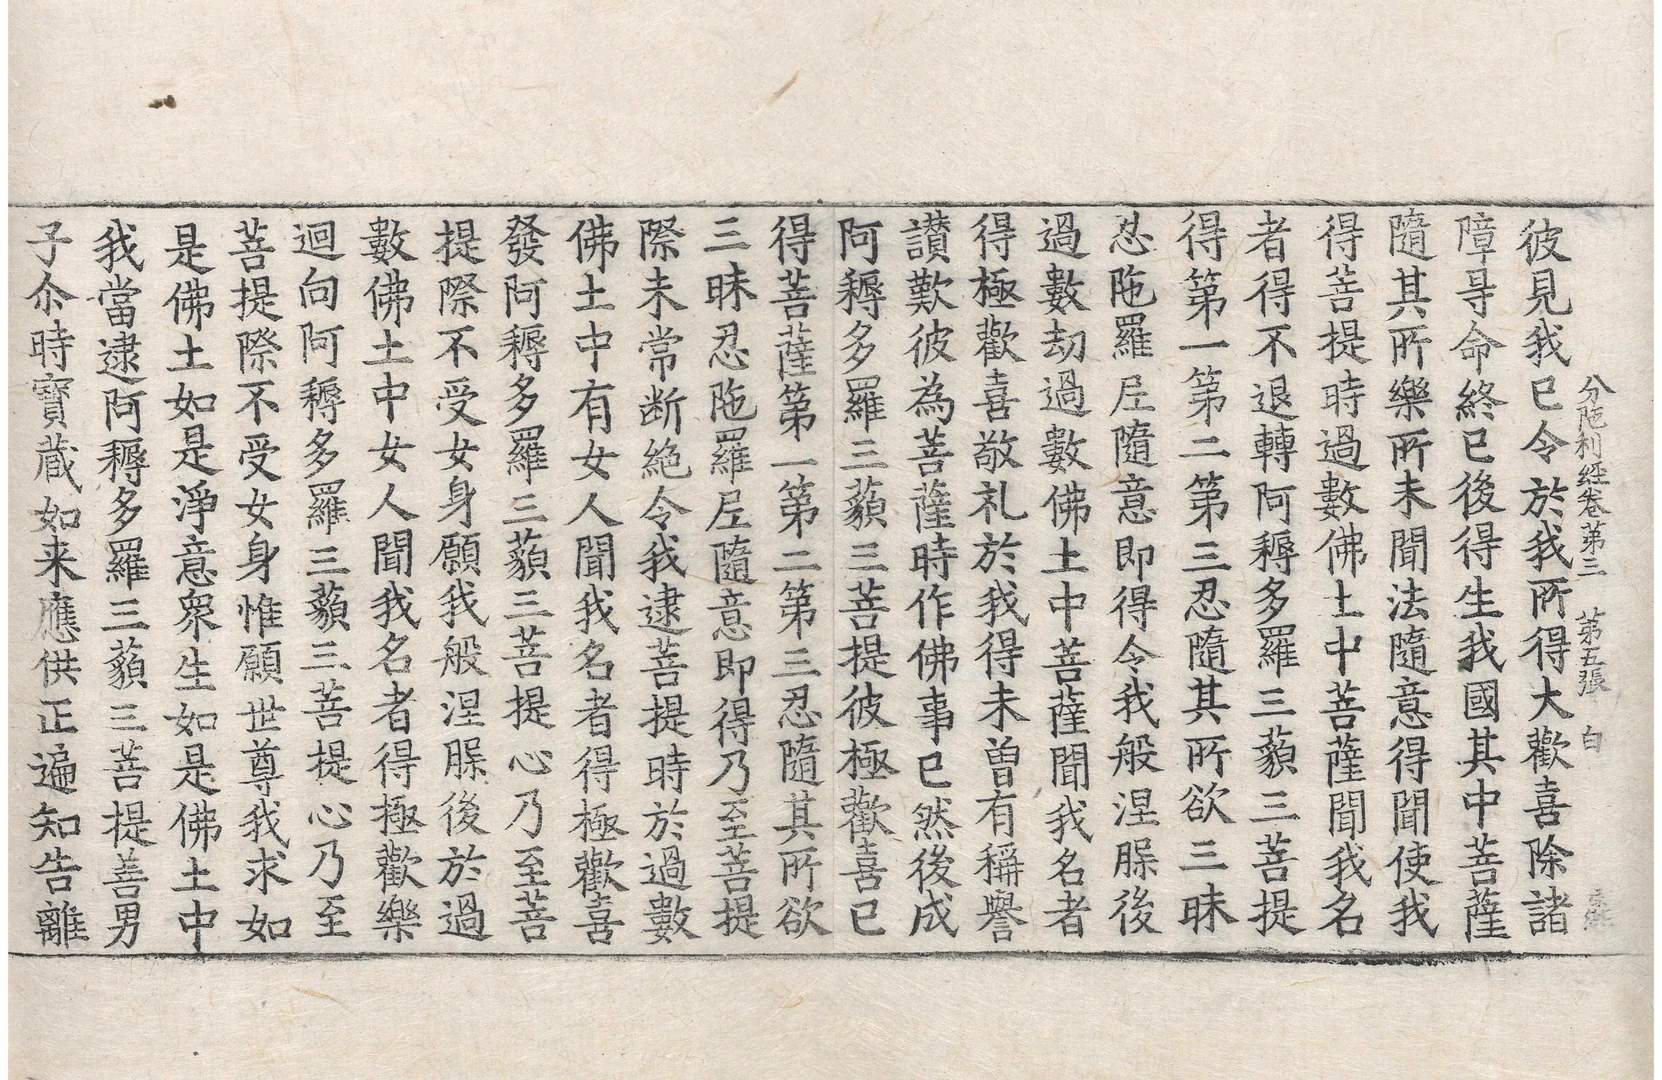 分陁利經卷第三　第五張　白
彼見我已令於我所得大歡喜除諸
障㝵命終已後得生我國其中菩薩
隨其所樂所未聞法隨意得聞使我
得菩提時過數佛土中菩薩聞我名
者得不退轉阿耨多羅三藐三菩提
得第一第二第三忍隨其所欲三昧
忍陁羅尼隨意即得令我般涅槃後
過數劫過數佛土中菩薩聞我名者
得極歡喜敬礼於我得未曾有稱譽
讃歎彼為菩薩時作佛事已然後成
阿耨多羅三藐三菩提彼極歡喜已
得菩薩第一第二第三忍隨其所欲
三昧忍陁羅尼隨意即得乃至菩提
際未常断絶令我逮菩提時於過數
佛土中有女人聞我名者得極歡喜
發阿耨多羅三藐三菩提心乃至菩
提際不受女身願我般涅槃後於過
數佛土中女人聞我名者得極歡樂
迴向阿耨多羅三藐三菩提心乃至
菩提際不受女身惟願世尊我求如
是佛土如是淨意衆生如是佛土中
我當逮阿耨多羅三藐三菩提善男
子尒時寶蔵如来應供正遍知告離